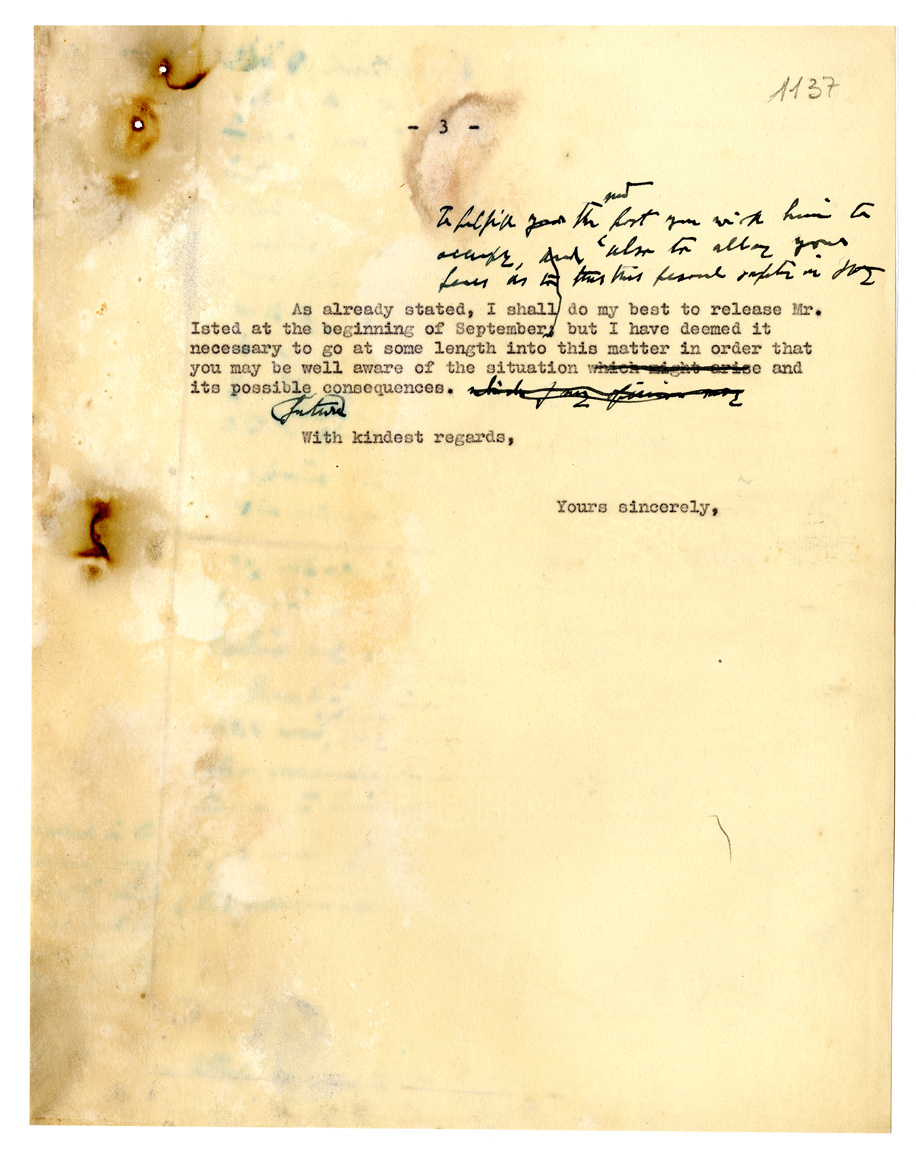 1137
- 3 -
to fulfil the post you wish him to
occupy, and also to allay your
fears as to his personal safety in
As already stated, I shall do my best to release Mr.
Isted at the beginning of September, but I have deemed it
necessary to go at some length into this matter in order that
you may be well aware of the situation which might arise and
its possible consequences.
future
With kindest regards,
Yours sincerely,